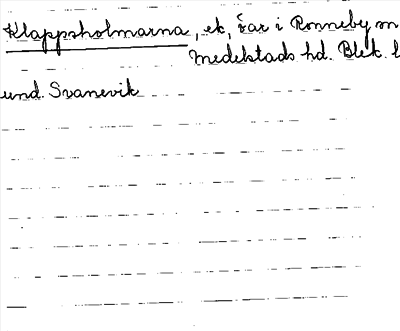 Klappsholmarna, ek, öar i Ronneby sn
Medelstads hd. Blek. l
und. Svanevik